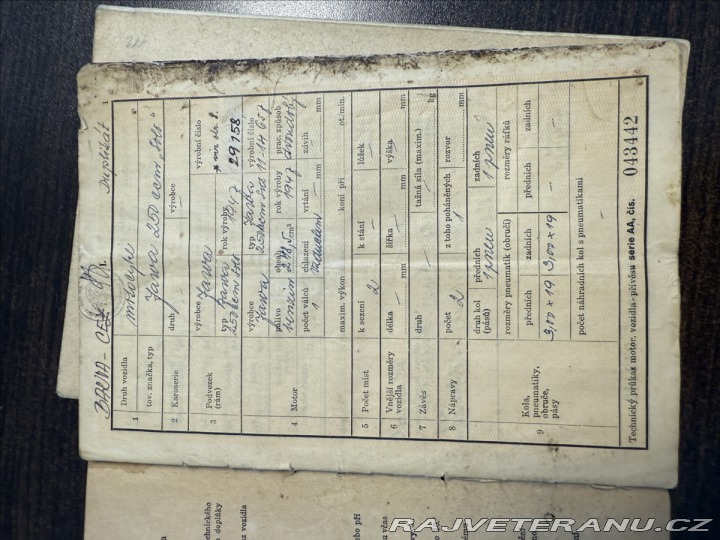 BARVA - Duplikát 1
1 Druh vozidla motocykl
tov. značka, typ Jawa 250 ccm
2 Karoserie druh výrobce výrobní číslo
3 Podvozek (rám) výrobce Jawa typ Jawa 250 ccm rok výroby 1947 výrobní číslo 29158
4 Motor výrobce Jawa typ Jawa 250 ccm výrobní číslo 11-14657
palivo benzin obsah cm³ rok výroby 1947 prac. způsob dvoudobý
počet válců 1 chlazení vzduchem vrtání — mm zdvih — mm
maxim. výkon koní při ot./min.
5 Počet míst k sezení 2 k stání — lůžek —
6 Vnější rozměry vozidla délka — mm šířka — mm výška — mm
7 Závěs druh — tažná síla (maxim.) — kg
8 Nápravy počet 2 z toho poháněných 1 rozvor
9 Kola, pneumatiky, obruče, pásy
druh kol (pásů) předních 1 pneu zadních 1 pneu
rozměry pneumatik (obručí) rozměry ráfků
předních zadních předních zadních
3,00 x 19 3,00 x 19 — —
počet náhradních kol s pneumatikami —
Technický průkaz motor. vozidla - přívěsu serie AA, čís. 043442
RAJVETERANU.CZ